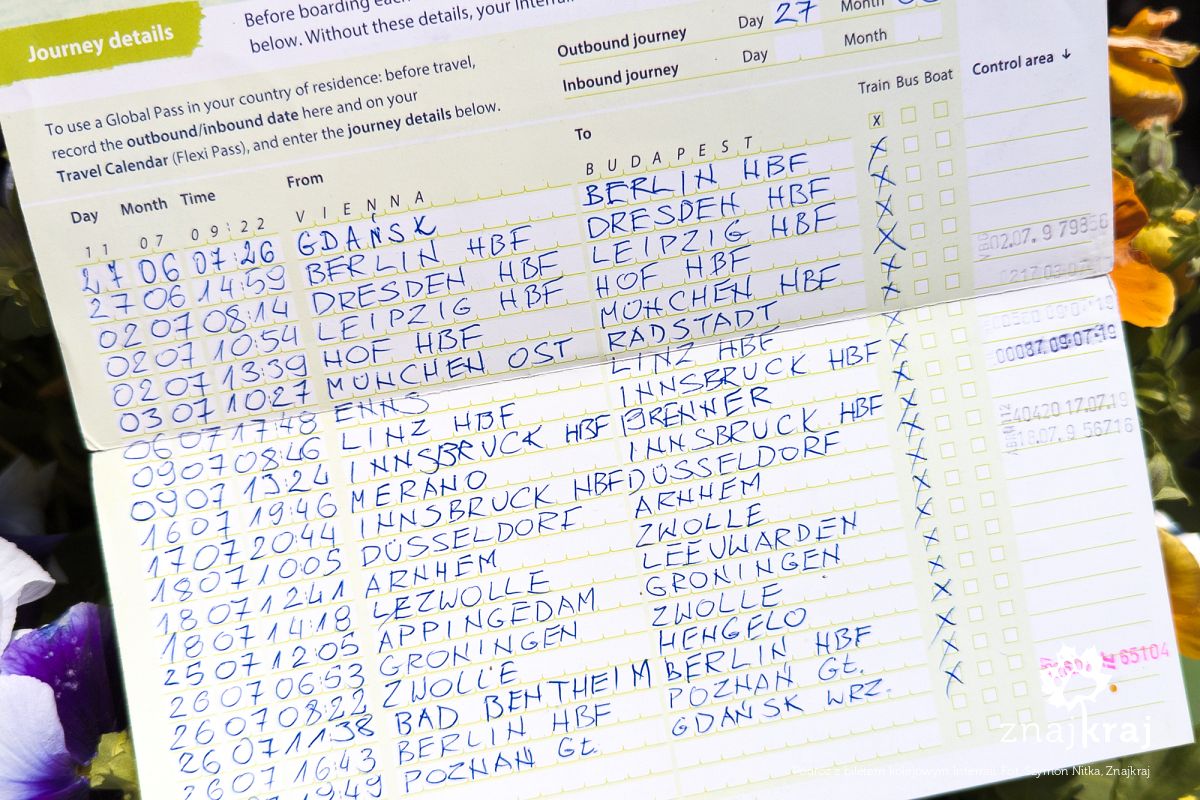 Journey details
Before boarding each
below. Without these details, your Interrail
To use a Global Pass in your country of residence: before travel,
record the outbound/inbound date here and on your
Travel Calendar (Flexi Pass), and enter the journey details below.
Outbound journey Day 27 Month
Inbound journey Day Month
Day Month Time From To Train Bus Boat Control area ↓
11 07 09:22 VIENNA BUDAPEST x
27 06 07:26 GDAŃSK BERLIN HBF x
27 06 14:59 BERLIN HBF DRESDEN HBF x
02 07 08:14 DRESDEN HBF LEIPZIG HBF x
02 07 10:54 LEIPZIG HBF HOF HBF x
02 07 13:39 HOF HBF MÜNCHEN HBF x
03 07 10:27 MÜNCHEN OST RADSTADT x
06 07 17:48 ENNS LINZ HBF x
09 07 08:46 LINZ HBF INNSBRUCK HBF x
09 07 13:24 INNSBRUCK HBF BRENNER x
16 07 19:46 MERANO INNSBRUCK HBF x
17 07 20:44 INNSBRUCK HBF DÜSSELDORF x
18 07 10:05 DÜSSELDORF ARNHEM x
18 07 12:41 ARNHEM ZWOLLE x
18 07 14:18 ZWOLLE LEEUWARDEN x
25 07 12:05 APPINGEDAM GRONINGEN x
26 07 06:53 GRONINGEN ZWOLLE x
26 07 08:22 ZWOLLE HENGELO x
26 07 11:38 BAD BENTHEIM BERLIN HBF x
26 07 16:43 BERLIN HBF POZNAŃ Gł. x
19:49 POZNAŃ Gł. GDAŃSK WRZ.
02.07. 9 79856
00087.09.07.19
40420 17.07.19
18.07. 9 56716
65104
znajkraj
Podróż z biletem kolejowym Interrail. Fot. Szymon Nitka, Znajkraj